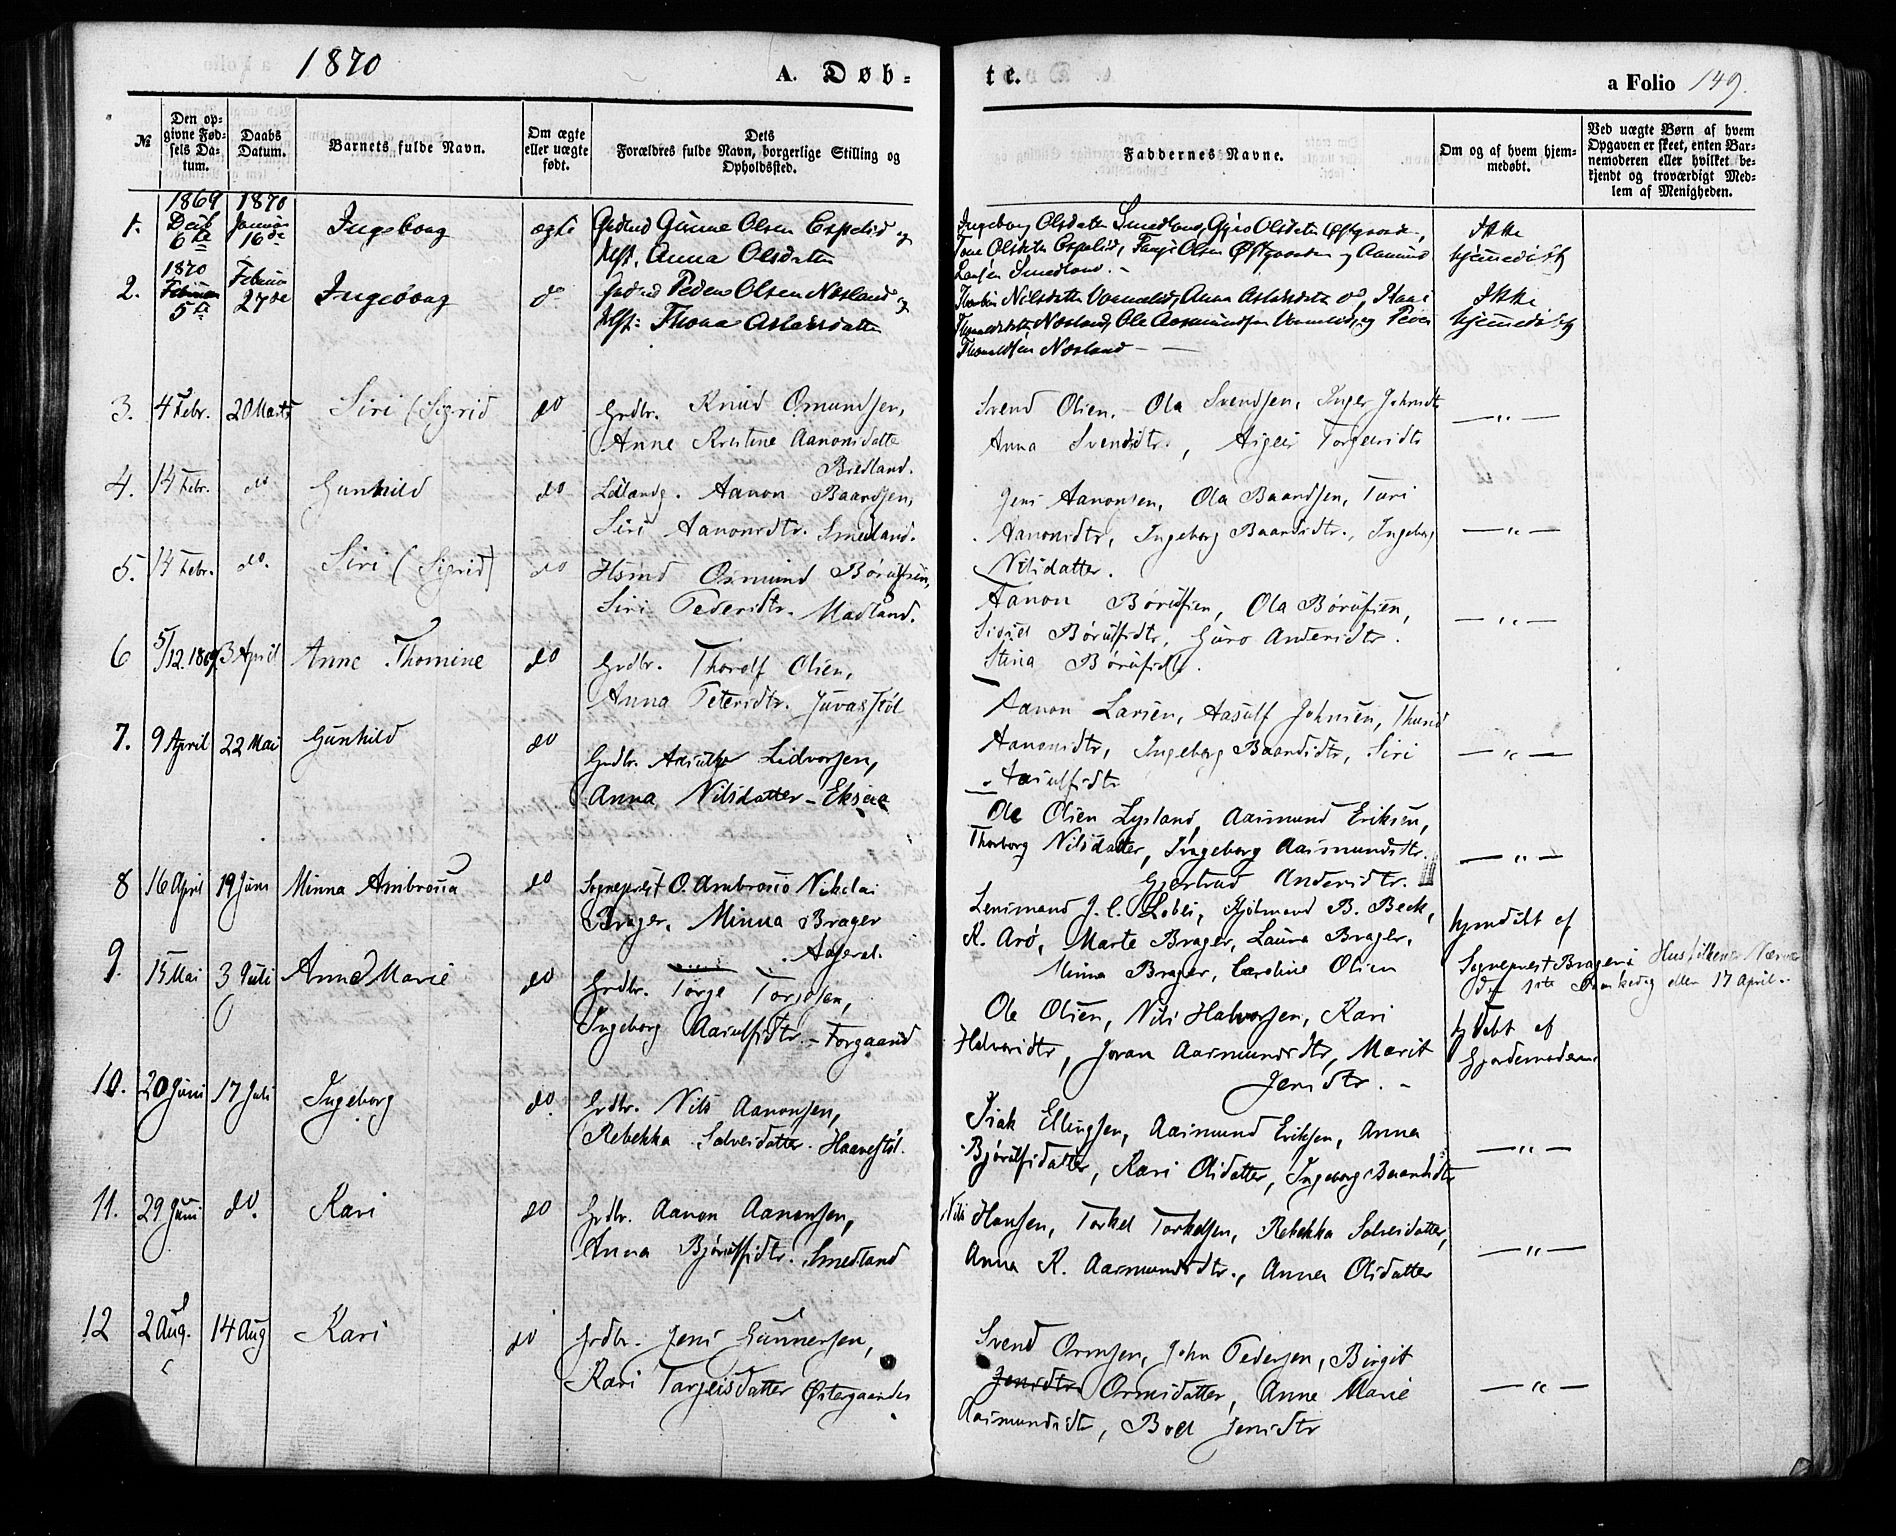 1870
A. Døb-
te.
a Folio 149.
№
Den op-
givne Fød-
sels Da-
tum.
Daabs
Datum.
Barnets fulde Navn.
Om ægte
eller uægte
født.
Dets
Forældres fulde Navn, borgerlige Stilling og
Opholdssted.
Faddernes Navne.
Om og af hvem hjem-
medøbt.
Ved uægte Børn af hvem
Opgaven er skeet, enten Bar-
nemoderen eller hvilket be-
kjendt og troværdigt Med-
lem af Menigheden.
1.
1869
6te
1870
Januar
16de
Ingeborg
ægte
Gunne Olsen Espelid og
Anna Olsdatter
Ingeborg Olsdatter Smedland, Gyro Olsdatter Østgaarden,
Tone Olsdatter Espelid, Olsen Østgaarden og Aamund
Smedland. -
Ikke
hjemmedøbt
2.
1870
Februar
5te
Februar
27de
Ingeborg
do
Peder Olsen Nøsland og
Thona Aslaksdatter
Nilsdatter Anna Aslaksdatter
Nøsland, Ole Aasmundsen og Peder
Nøsland
Ikke
hjemmedøbt
3.
4 Febr.
20 Marts
Siri (Sigrid
do
Grdbr. Knud Omundsen,
Anne Kristene Aanonsdatte
Bredland.
Svend Olsen, Ola Svendsen, Inger Johnsdtr
Anna Svendsdtr., Torgeirsdtr
— „ —
4.
14 Febr.
do
Gunhild
do
Aanon Baardsen,
Siri Aanonsdtr. Smedland.
Jens Aanonsen, Ola Baardsen, Turi
Aanonsdtr, Ingeborg Baardsdtr., Ingeborg
Nilsdatter.
— „ —
5.
14 Febr.
do.
Siri (Sigrid)
do
Hsmd Osmund Børulfsen,
Siri Pedersdtr. Madland.
Aanon Børulfsen, Ola Børulfsen,
Sidsel Børulfsdtr, Guro Andersdtr.
Stina Børulfsdtr.
— „ —
6
5/12.1869
3 April
Anne Thomine
do
Grdbr. Thorolf Olsen,
Anna Petersdtr. Juvasstøl
Aanon Larsen, Aasulf Johnsen,
Aanonsdtr, Ingeborg Baardsdtr, Siri
Aasulfsdtr
— „ —
7.
9 April
22 Mai
Gunhild
do
Grdbr. Lidvorsen,
Anna Nilsdatter -
Ole Olsen Lysland, Aasmund Eriksen,
Thorborg Nilsdatter, Ingeborg Aasmundsdtr.
Gjertrud Andersdtr.
— „ —
8
16 April
19 Juni
Minna Ambrosia
do
Sognepræst O. Ambrosio Nikolai
Brager, Minna Brager
Aaseral.
Lensmand J. C. B. Beck,
K. Arø, Marte Brager, Laura Brager,
Minna Brager, Caroline Olsen
hjemdøbt af
Sognepræst Brager i Nærvær
den 1ste Paaskedag eller 17 April.
9.
15 Mai
3 Juli
Anne Marie
do
Grdbr. Torge Torjosen,
Ingeborg Aasulfsdtr. -
Ole Olsen, Nils Halvorsen, Kari
Halvorsdtr, Joran Aasmundsdtr, Marit
Jensdtr. -
hj.døbt af
Gjordemoderen
10.
20 Juni
17 Juli
Ingeborg
do.
Grdbr. Nils Aanonsen,
Rebekka Salvesdatter. Haavestøl.
Isak Ellingsen, Aasmund Eriksen, Anna
Bjørulfsdatter, Kari Olsdatter, Ingeborg Baardsdtr
— „ —
11.
29 Juni
do.
Kari
do
Grdbr. Aanon Aanonsen,
Anna Bjørulfsdtr. Smedland
Nils Hansen, Torkel Torkelsen, Rebekka Salvesdatter,
Anna K. Aasmundsdtr., Anna Olsdatter
— „ —
12
2 Aug.
14 Aug
Kari
do
Grdbr. Jens Gunnersen,
Kari Tarjeisdatter Østergaarden
Svend Ormsen, John Pedersen, Birgit
Jensdtr Ormsdatter, Anne Marie
Aasmundsdtr, Boel Jensdtr
— „ —